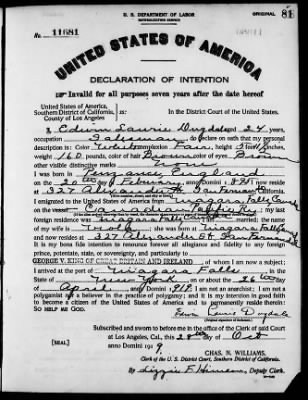 U. S. DEPARTMENT OF LABOR
NATURALIZATION SERVICE
ORIGINAL 81
No. 11681
UNITED STATES OF AMERICA
DECLARATION OF INTENTION
Invalid for all purposes seven years after the date hereof
United States of America,
Southern District of California,
County of Los Angeles
In the District Court of the United States.
I, Edwin aged 24 years,
occupation Salesman, do declare on oath that my personal
description is: Color White, complexion Fair, height 5 feet inches,
weight 160 pounds, color of hair Brown, color of eyes Brown
other visible distinctive marks None
I was born in Penzance England
on the 20th day of February, anno Domini I now reside
at 327
I emigrated to the United States of America from Niagara Falls
on the vessel Canadian; my last
foreign residence was Niagara Falls
It is my bona fide intention to renounce forever all allegiance and fidelity to any foreign
prince, potentate, state, or sovereignty, and particularly to
GEORGE V, KING OF GREAT BRITAIN AND IRELAND of whom I am now a subject;
I arrived at the port of Niagara Falls,
in the State of New York, on or about the 26 day
of April, anno Domini 1919; I am not an anarchist; I am not a
polygamist nor a believer in the practice of polygamy; and it is my intention in good faith
to become a citizen of the United States of America and to permanently reside therein:
SO HELP ME GOD.
Subscribed and sworn to before me in the office of the Clerk of said Court
at Los Angeles, Cal., this 28th day of Oct
anno Domini 1919.
[SEAL]
CHAS. N. WILLIAMS,
Clerk of the U. S. District Court, Southern District of California.
By, Deputy Clerk.